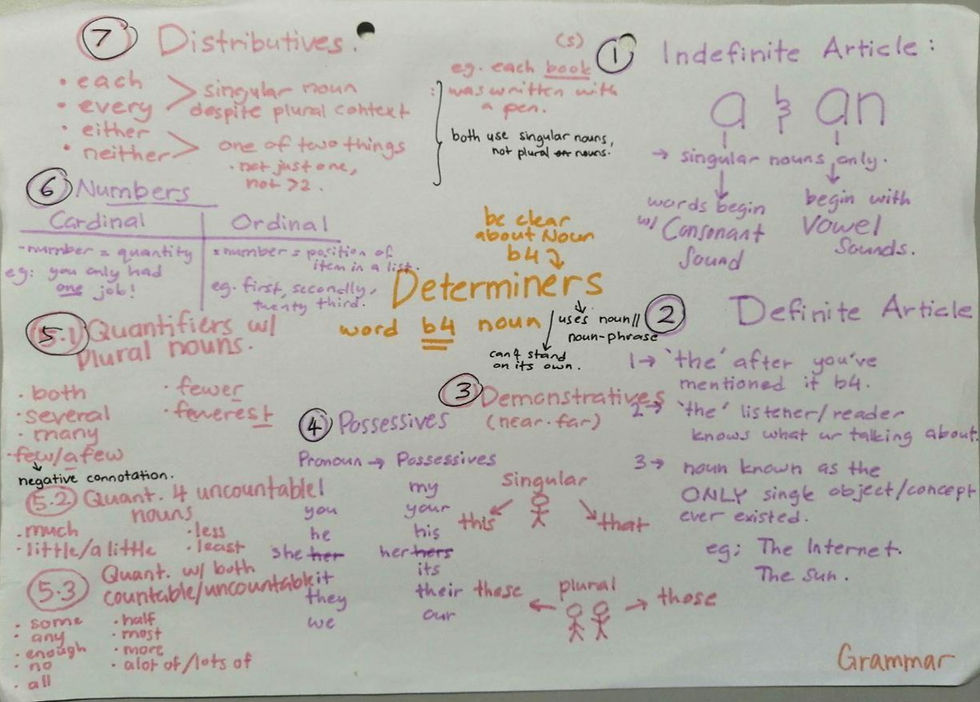 Determiners
be clear
about Noun
b4
word b4 noun
uses noun//
noun-phrase
can't stand
on its own.
1 Indefinite Article:
a & an
→ singular nouns only.
words begin
w/ Consonant
Sound
begin with
Vowel
Sounds.
2 Definite Article
1→ 'the' after you've
mentioned it b4.
2→ 'the' listener/reader
knows what ur talking about.
3→ noun known as the
ONLY single object/concept
ever existed.
eg: The Internet.
The Sun.
3 Demonstratives
(near-far)
Singular
this
that
plural
these
those
4 Possessives
Pronoun → Possessives
I my
you your
he his
she her her hers
it its
they their
we our
5.1 Quantifiers w/
plural nouns.
· both
· several
· many
· few/a few
negative connotation.
· fewer
· fewerest
5.2 Quant. 4 uncountable
nouns
· much
· little/a little
· less
· least
5.3 Quant. w/ both
countable/uncountable
· some
· any
· enough
· no
· all
· half
· most
· more
· alot of/lots of
6 Numbers
Cardinal
- number = quantity
eg: you only had
one job!
Ordinal
= number = position of
item in a list.
eg. first, secondly,
twenty third.
7 Distributives.
· each
· every
singular noun
despite plural context
· either
· neither
one of two things
· not just one,
not >2.
(s)
eg. each book
was written with
a pen.
both use singular nouns,
not plural or nouns.
Grammar